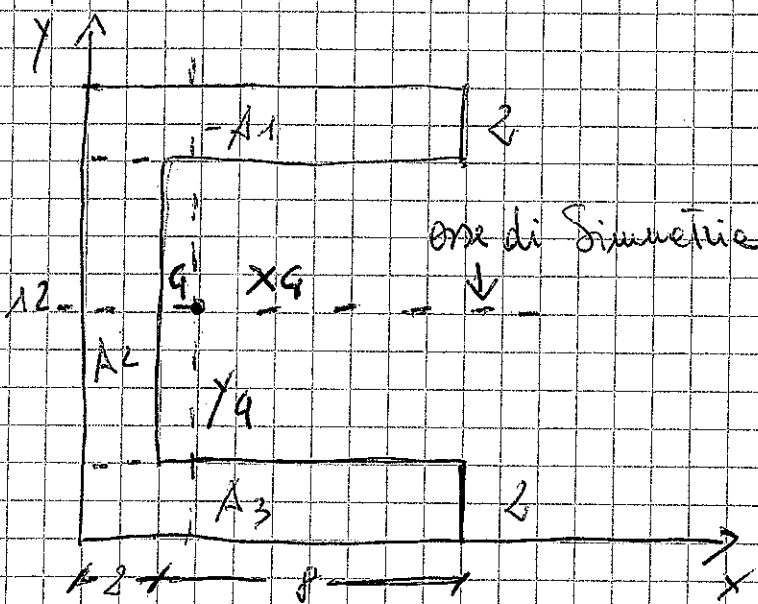 Y
A1
2
asse di Simmetria
G XG
12
A2
YG
A3
2
2 8
X